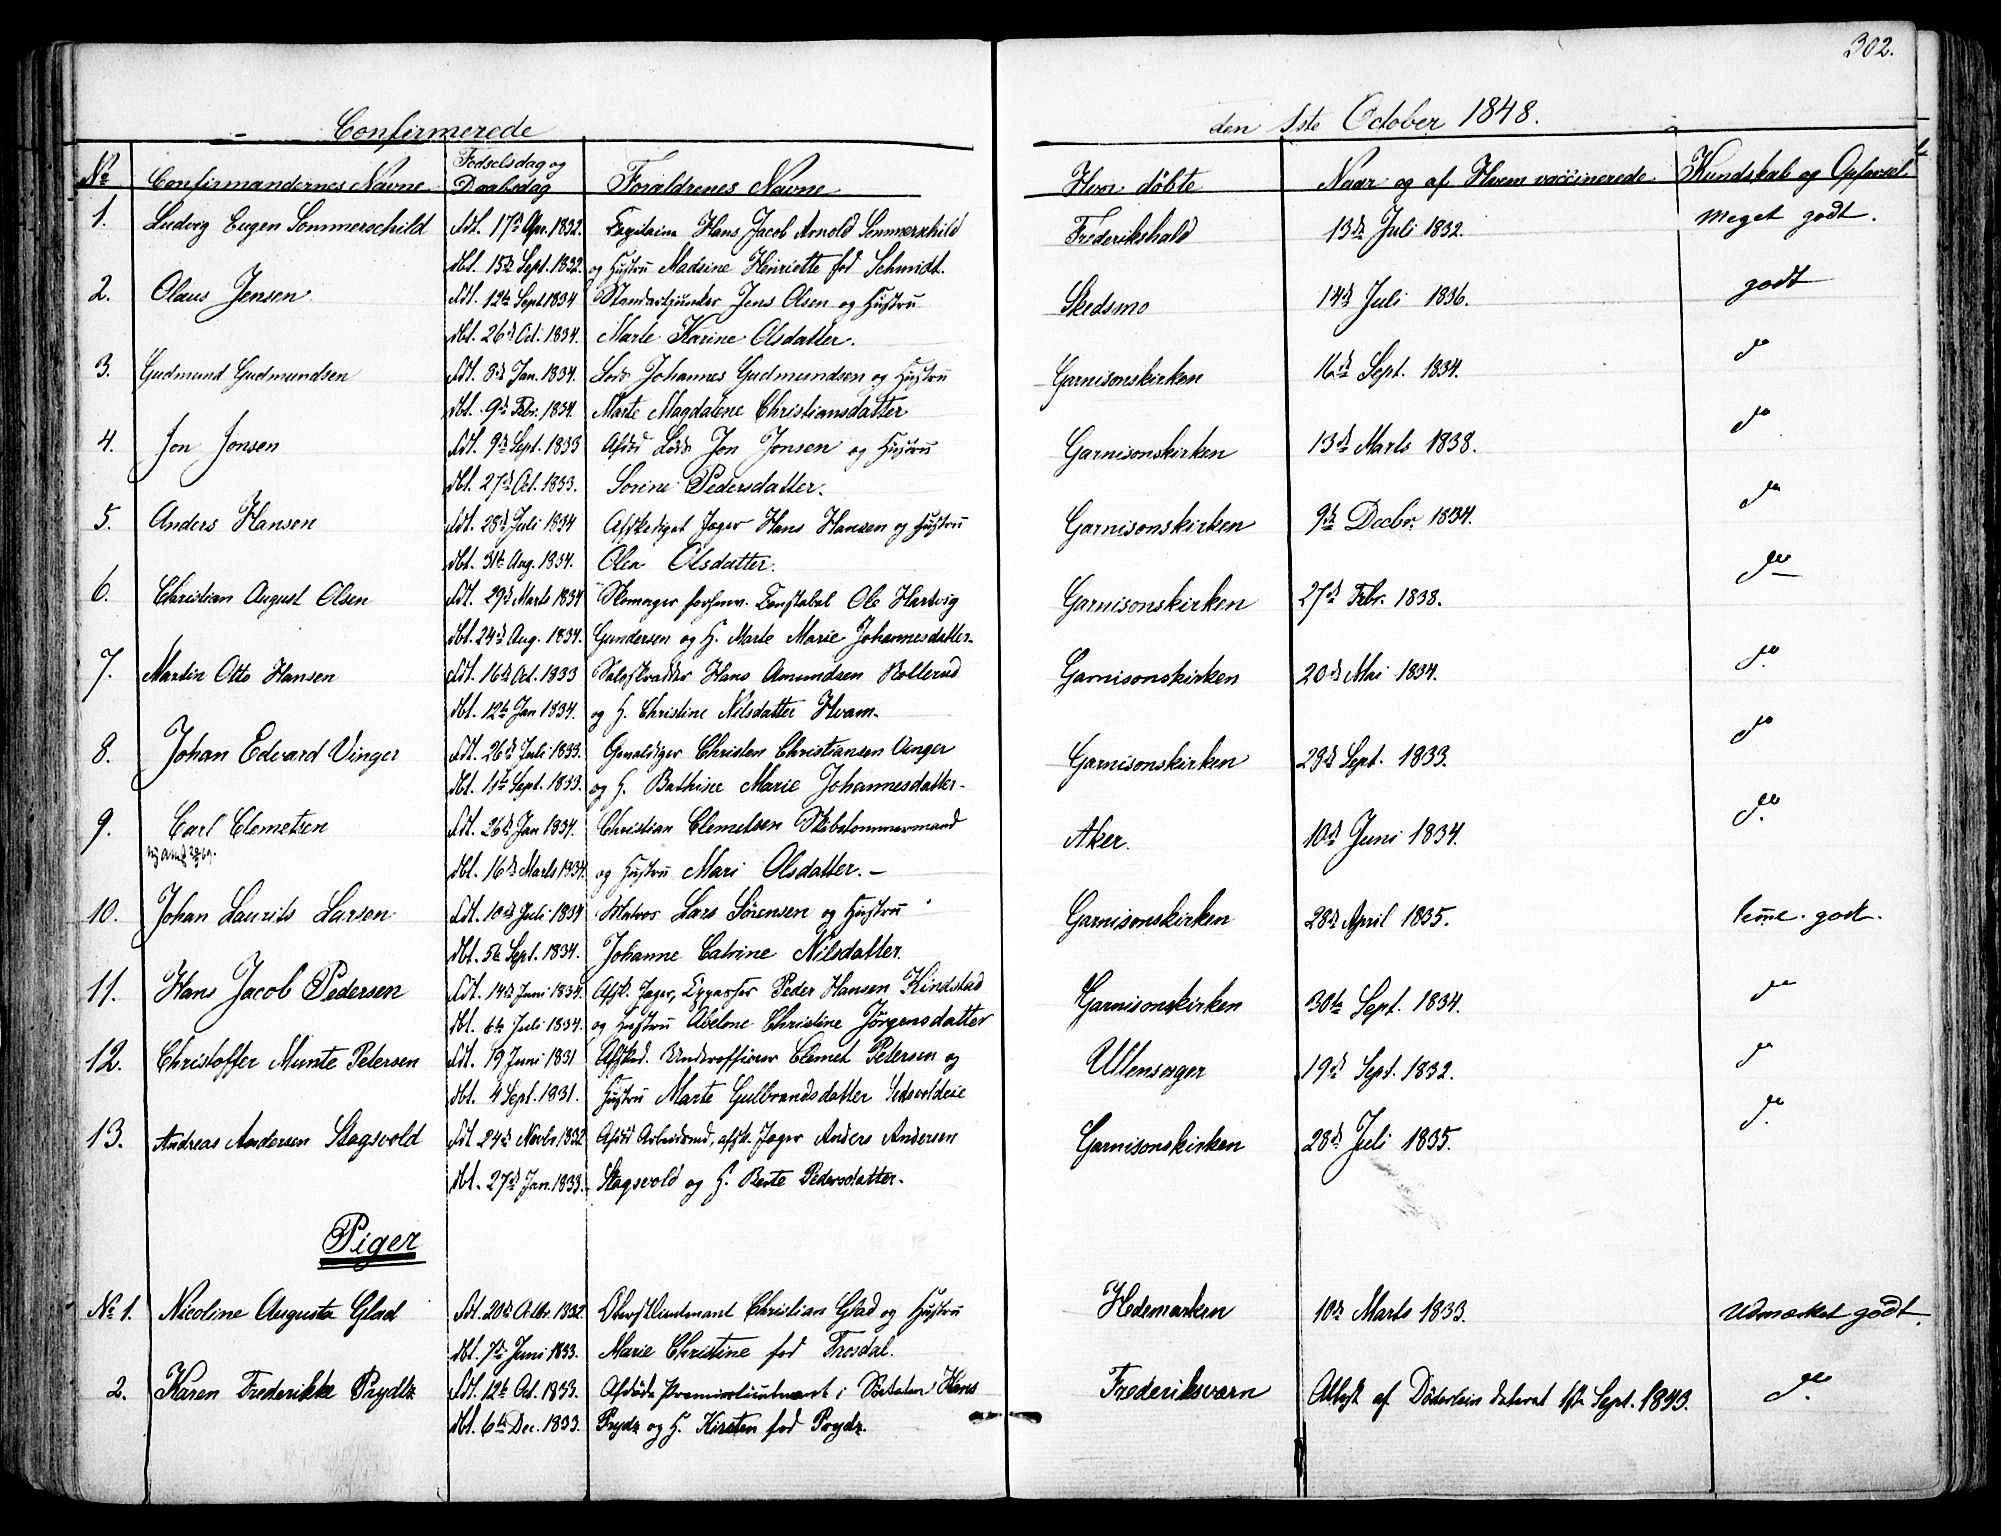 302.
Confirmerede den 1ste October 1848.
No Confirmandernes Navne Fødselsdag og Daabsdag Forældrenes Navne Hvor døbte Naar og af Hvem vaccinerede Kundskab og Opførsel
1. Ludvig Eugen Sommerschild fdt. 17de Apr. 1832. Capitaine Hans Jacob Arnold Sommerschild Frederikshald 13de Juli 1832. Meget godt.
dbt. 15de Sept. 1832. og Hustru Madsine Henriette fød Schmidt.
2. Olaus Jensen fdt. 12te Sept 1834 Standartjunker Jens Olsen og Hustru Skedsmo 14de Juli 1836. godt
dbt. 26de Oct. 1834. Marte Karine Olsdatter.
3. Gudmund Gudmundsen fdt. 8de Jan. 1834. Johannes Gudmundsen og Hustru Garnisonskirken 16de Sept. 1834. do
dbt. 9de Febr. 1834. Marte Magdalene Christiansdatter
4. Jon Jonsen fdt. 9de Sept. 1833 Afdød Jon Jonsen og Hustru Garnisonskirken 13de Marts 1838. do
dbt. 27de Oct. 1833. Sorine Pedersdatter.
5. Anders Hansen fdt. 28de Juli 1834 Afskediget Jæger Hans Hansen og Hustru Garnisonskirken 9de Decbr. 1834. do
dbt. 31te Aug. 1834. Olea Olsdatter.
6. Christian August Olsen fdt. 29de Marts 1834 Skomager forhenv. Constabel Ole Hartvig Garnisonskirken 27de Febr. 1838. do
dbt. 24de Aug. 1834. Gundersen og H. Marte Marie Johannesdatter.
7. Martin Otto Hansen fdt. 16de Oct. 1833 Hans Amundsen Rollerud Garnisonskirken 20de Mai 1834. do
dbt. 12te Jan 1834. og H. Christine Nilsdatter Hvam.
8. Johan Edvard Vinger fdt. 26de Juli 1833. Gevaldiger Christen Christiansen Vinger Garnisonskirken 29de Sept. 1833. do
dbt. 1te Sept. 1833. og H. Marie Johannesdatter.
9. Carl Clemetsen fdt. 26de Jan 1834. Christian Clemetsen Skibstømmermand Aker. 10de Juni 1834. do
dbt. 16de Marts 1834. og Hustru Mari Olsdatter.
10. Johan Laurits Larsen fdt. 10de Juli 1834 Matros Lars Sørensen og Hustru Garnisonskirken 28de April 1835. temme. godt.
dbt. 5te Sept. 1834. Johanne Catrine Nilsdatter.
11. Hans Jacob Pedersen fdt. 14de Juni 1834. Afsk. Jæger, Peder Hansen Kindstad Garnisonskirken 30te Sept. 1834. do
dbt. 6te Juli 1834. og Hustru Abelone Christine Jørgensdatter
12. Christoffer Munte Petersen fdt. 19 Juni 1831 Afsked. Underofficier Clemet Petersen og Ullensager 19de Sept. 1832. do
dbt. 4 Sept. 1831. Hustru Marte Gulbrandsdatter
13. Andreas Andersen Stagsvold fdt 24de Novbr. 1832 Afdød Arbeidsmd, afsk. Jæger Anders Andersen Garnisonskirken 28de Juli 1835. do
dbt. 27de Jan. 1833. Stagsvold og H. Berte Pedersdatter.
Piger
No 1. Nicoline Augusta Glad fdt. 20de 1832. Oberstlieutenant Christian Glad og Hustru Hedemarken 10de Marts 1833. Udmærket godt.
dbt. 7de Juni 1833. Marie Christine fød Trosdal.
2. Karen Frederikke Prydtz fdt. 12te Oct. 1833. Afdøde Premierlieutenant i Søetaten Hans Frederiksværn Attest af Döderlein dateret 1ste Sept. 1843. do
dbt. 6te Dec. 1833. Prydz og H. Kirsten fød Prydz.